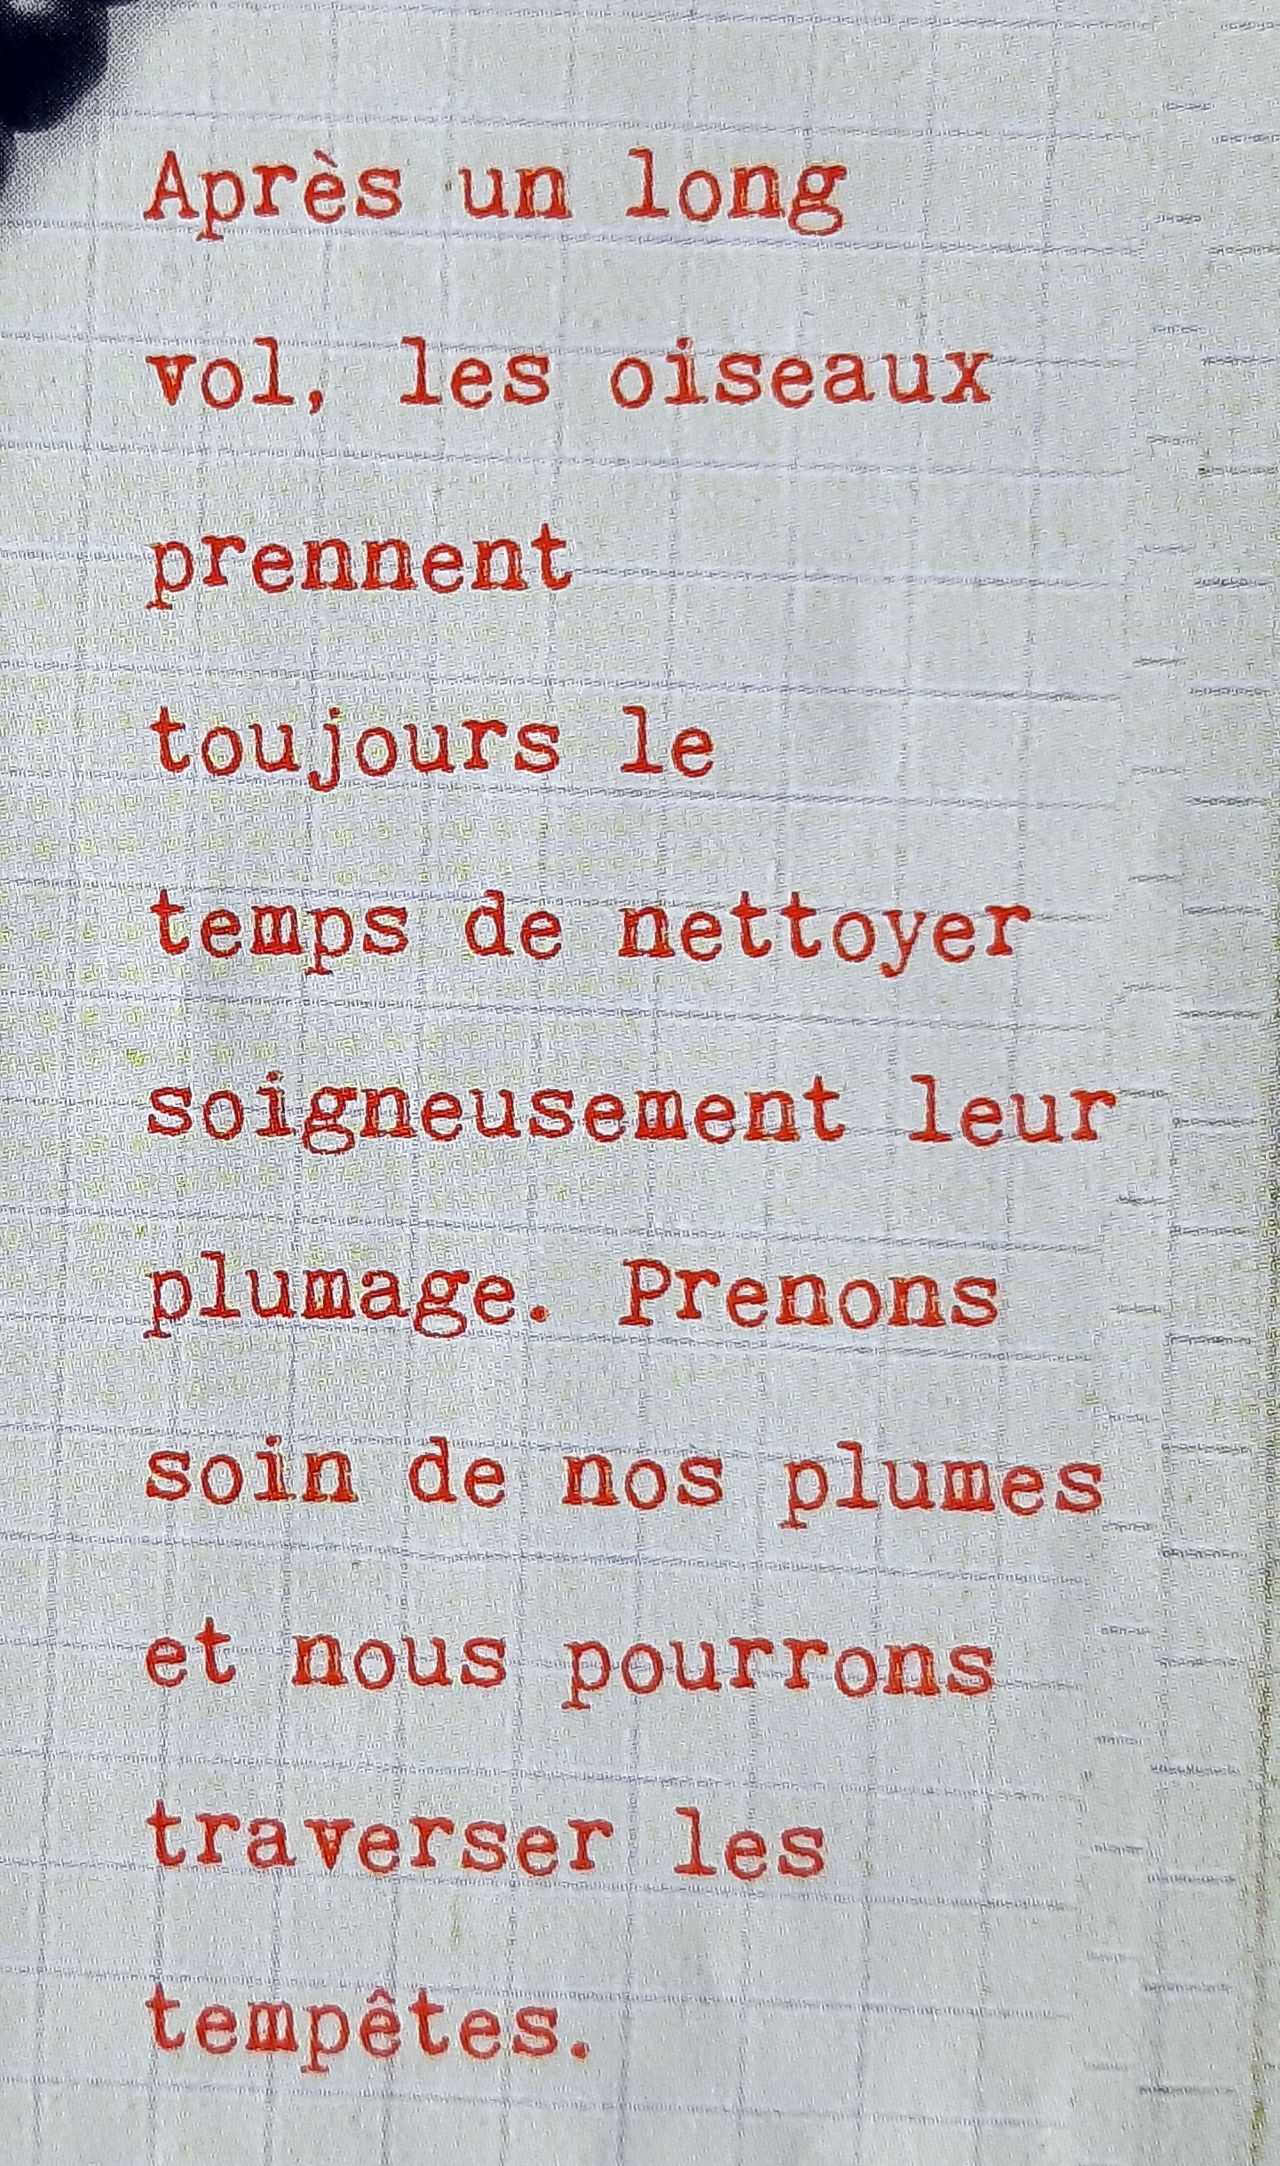 Après un long
vol, les oiseaux
prennent
toujours le
temps de nettoyer
soigneusement leur
plumage. Prenons
soin de nos plumes
et nous pourrons
traverser les
tempêtes.